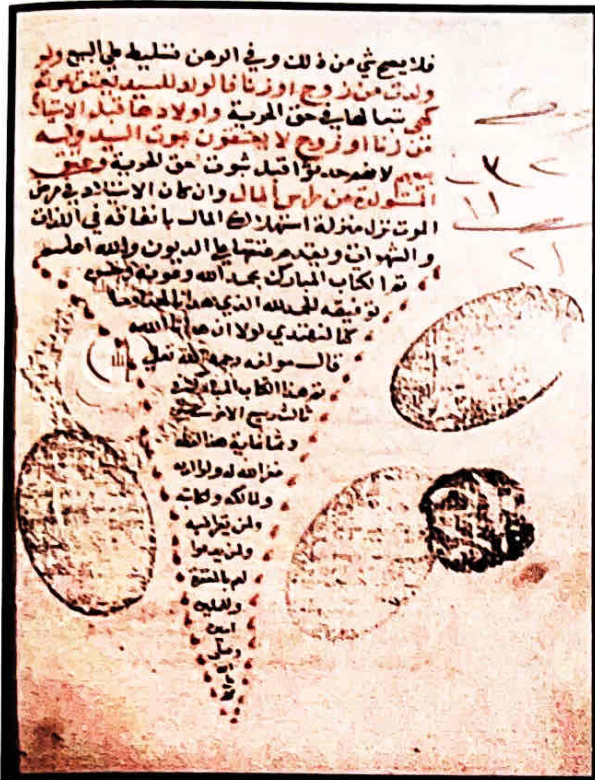 فلا يصح شي من ذلك وفي الرهن تسليط علي البيع ولو
ولدت من زوج او زنا فالولد للسيد يعتق بموته
كهي تبعا لها في حق الحرية واولادها قبل الاستيلاد
من زنا او زوج لا يعتقون بموت السيد وله
بيعهم لانهم حدثوا قبل ثبوت حق الحرية وعتق
المستولدة من راس المال وان كان الاستيلاد في مرض
الموت نزل منزلة استهلاك المال بانفاقه في اللذات
والشهوات ويقدم عتقها علي الديون والله اعلم
تم الكتاب المبارك بحمد الله وعونه وحسن
توفيقه الحمد لله الذي هدانا لهذا وما
كنا لنهتدي لولا ان هدانا الله
قال مولفه رحمه الله تعالي
تم هذا الكتاب المبارك
ثالث ربيع الاخر
وثمانماية
غفر الله له ولوالديه
ولمالكه ولكاتبه
ولمن قرا فيه
ولمن يدعوا
لهم بالمغفرة
امين
وصلي
الله
٣
١١
٢١